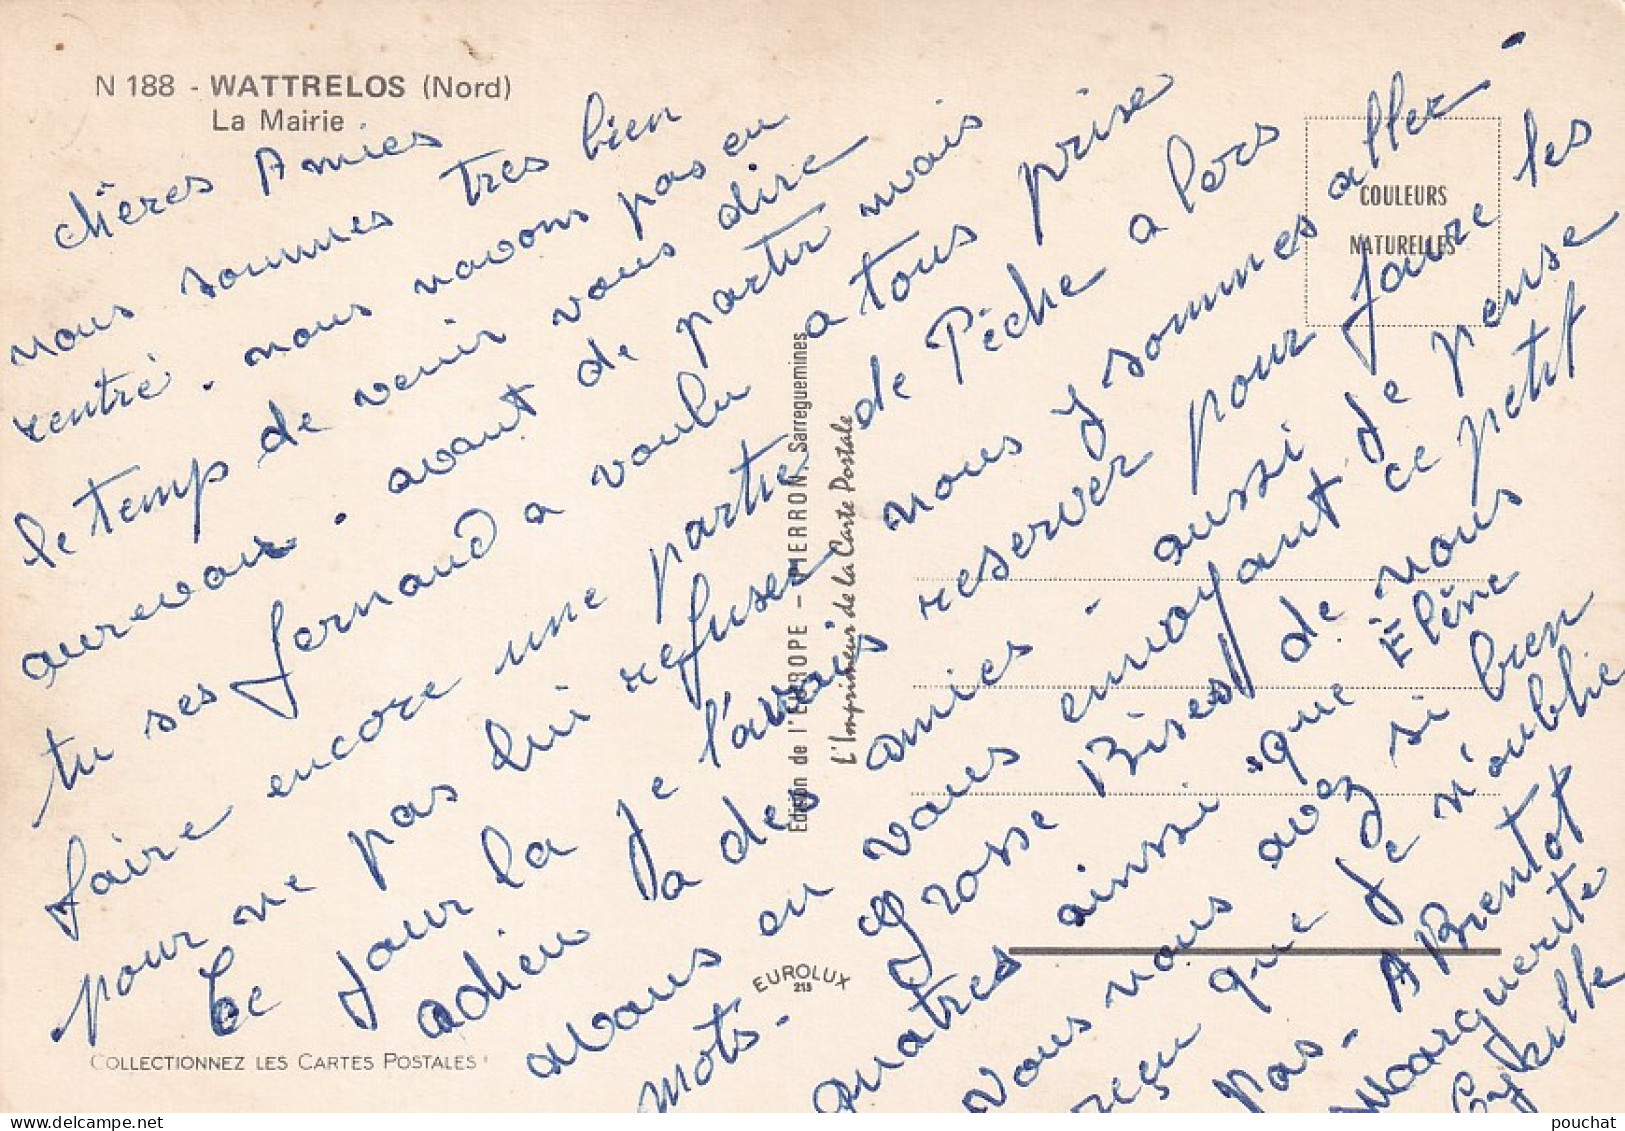 N 188 - WATTRELOS (Nord)
La Mairie
chères Amies
nous sommes tres bien
rentré. nous navons pas eu
le temps de venir vous dire
aurevoir. avant de partir mais
tu ses fernand a voulu a tous prise
faire encore une partie de Pêche a lors
pour ne pas lui refuser nous y sommes aller -
Ce jour la je l'avais reserver pour faire les
adieu a des amies - aussi je pense
avous en vous envoyant ce petit
mots - grosse Bises de nous
quatres ainssi que Élène
vous nous avez si bien
reçu que je n'oublie
pas - A Brentot
Marguerite
COULEURS
NATURELLES
Edition de l'EUROPE - PIERRON, Sarreguemines
L'Imprimeur de la Carte Postale
EUROLUX
213
COLLECTIONNEZ LES CARTES POSTALES !
pouchat